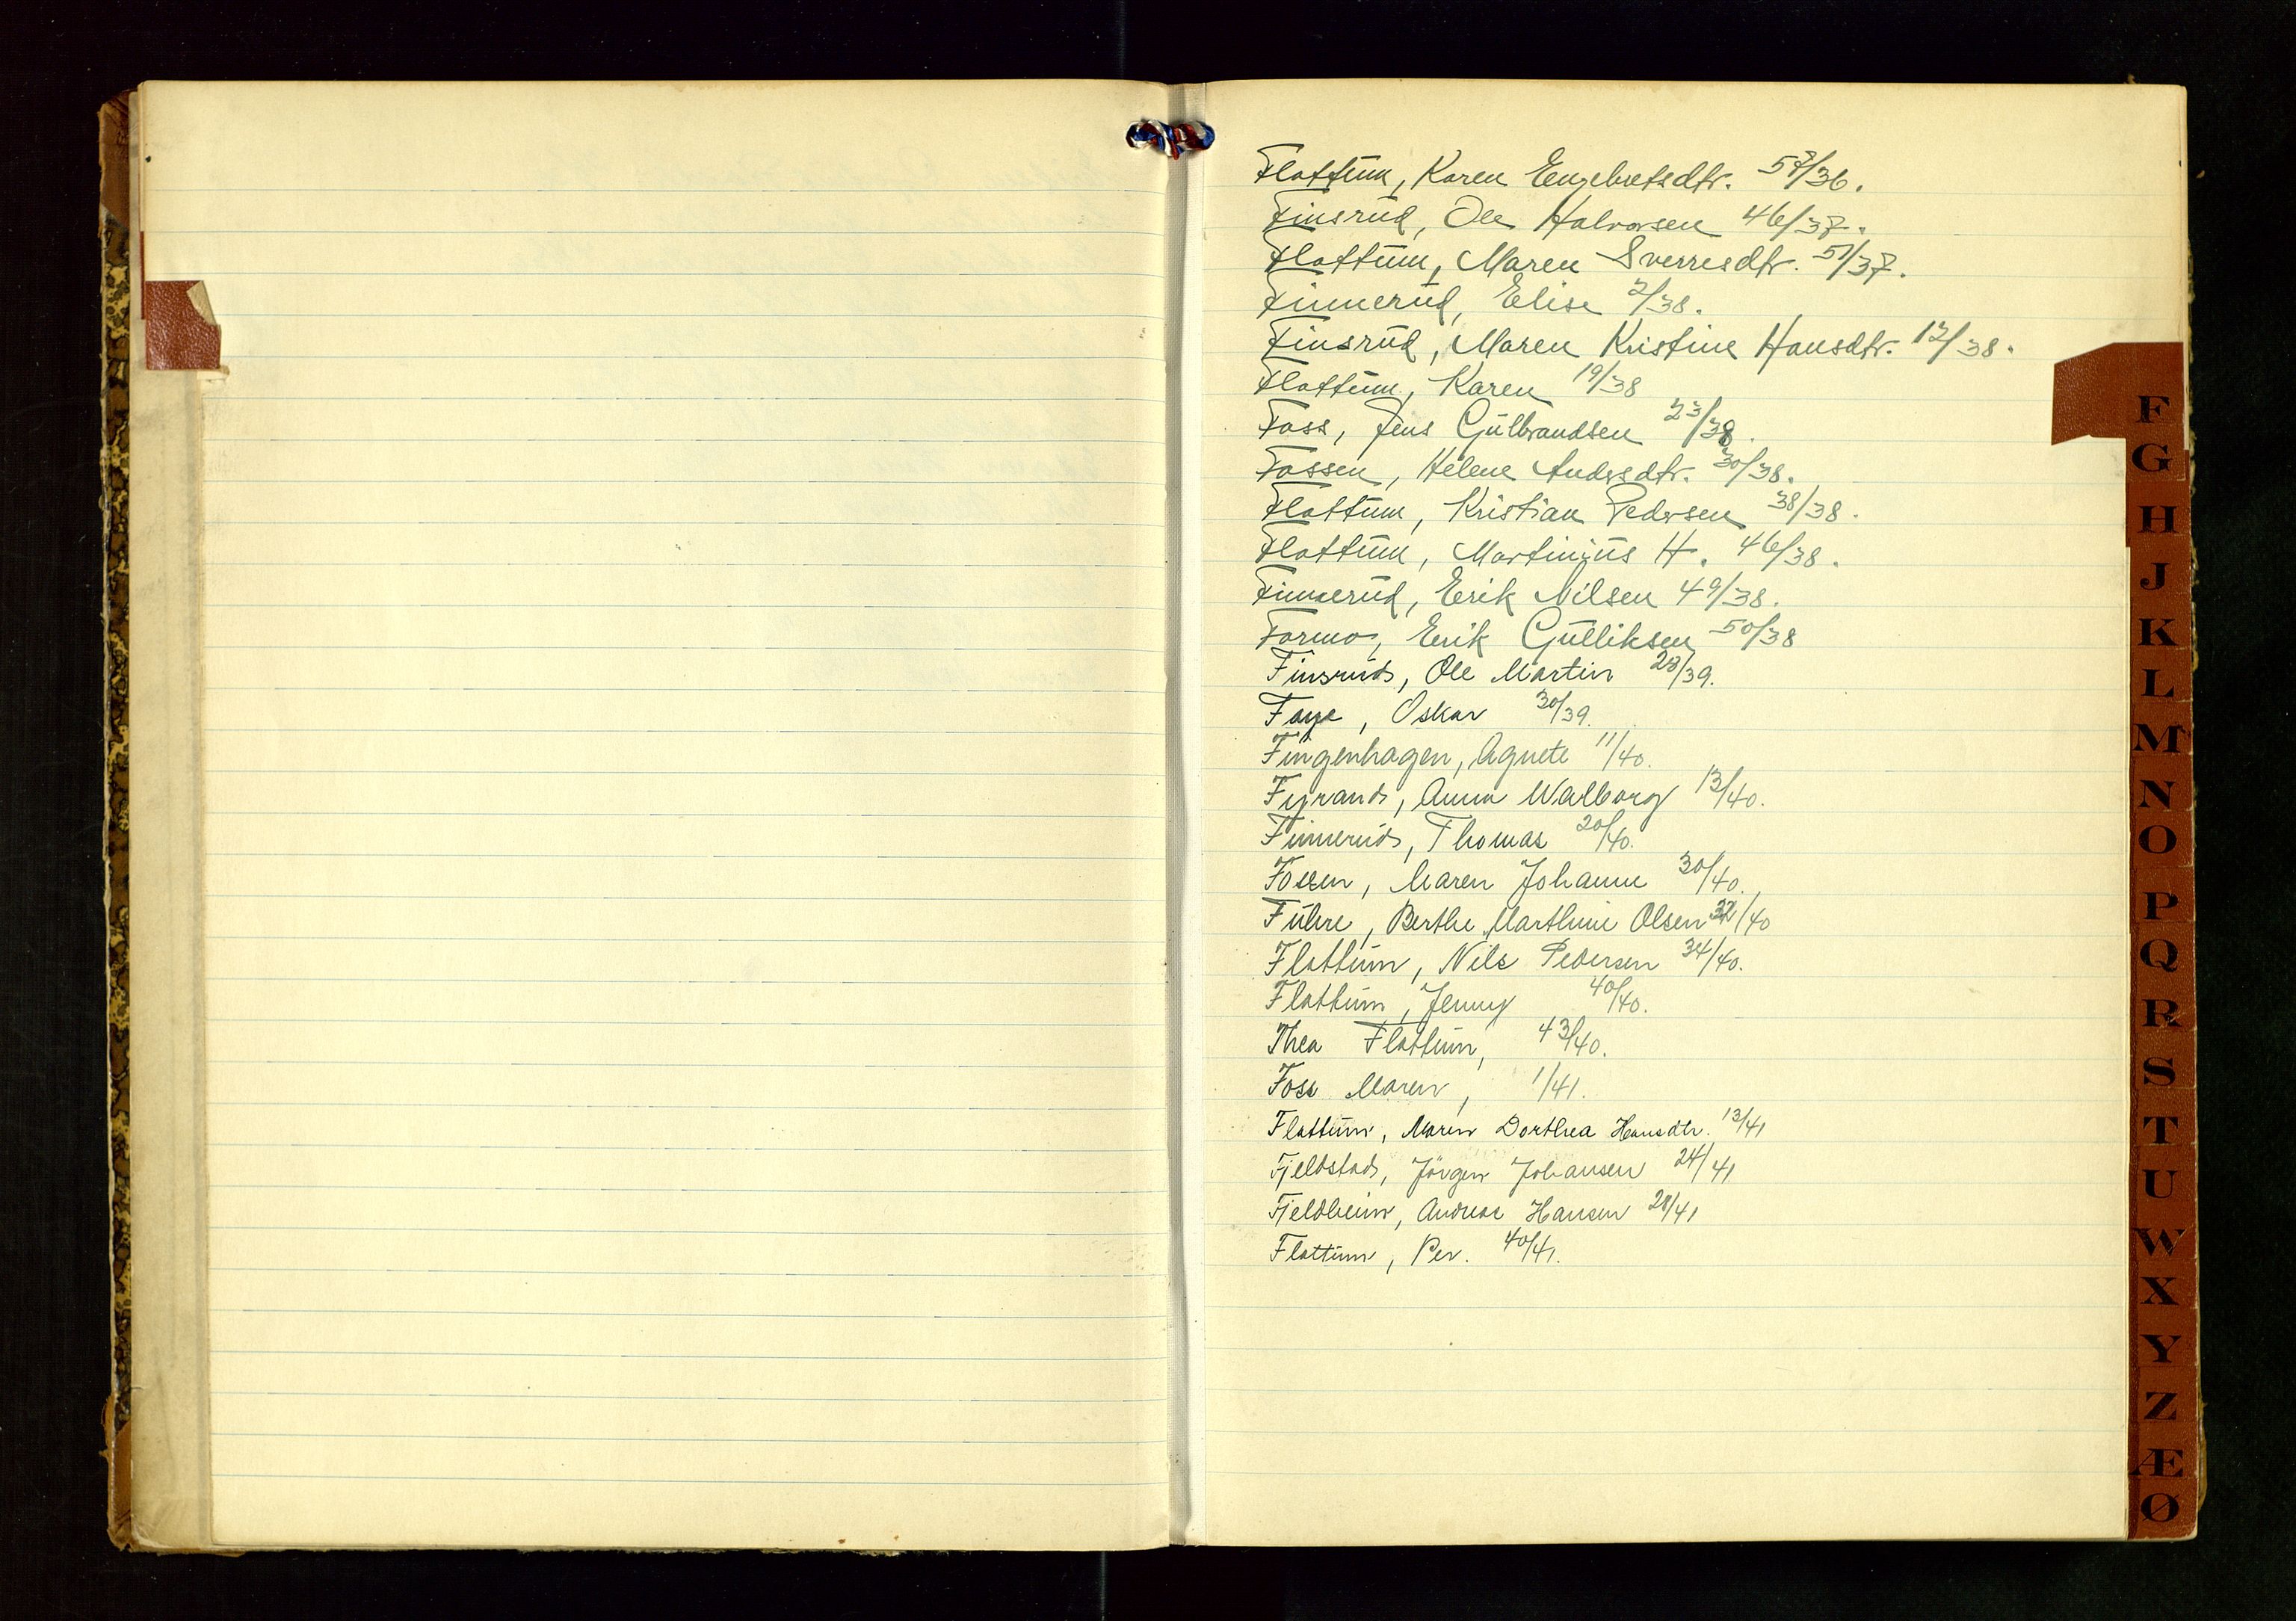 Flattum, Karen Engebretsdtr. 57/36.
Finsrud, Ole Halvorsen 46/37.
Flattum, Maren Sverresdtr. 51/37.
Finnerud, Elise 2/38.
Finsrud, Maren Kristine Hansdtr. 12/38.
Flattum, Karen 19/38
Foss, Jens Gulbrandsen 23/38.
Fossen, Helene Andersdtr. 30/38.
Flattum, Kristian Pedersen 38/38.
Flattum, Martinius H. 46/38.
Finnerud, Erik Nilsen 49/38.
Formo, Erik Gulliksen 50/38
Finsrud, Ole Martin 28/39.
Faye, Oskar 30/39.
Fingenhagen, Agnete 11/40.
Fyrand, Anna Walborg 13/40.
Finnerud, Thomas 20/40.
Fossen, Maren Johanne 30/40.
Fuhre, Berthe Marthine Olsen /40
Flattum, Nils Pedersen 34/40.
Flattum, Jenny 40/40.
Thea Flattum, 43/40.
Foss Maren, 1/41.
Flattum, Maren Dorthea Hansdtr. 13/41
Fjeldstad, Jörgen Johansen 24/41
Fjeldheim, Andreas Hansen 28/41
Flattum, Per. 40/41.
F
G
H
J
K
L
M
N
O
P
Q
R
S
T
U
W
X
Y
Z
Æ
Ø